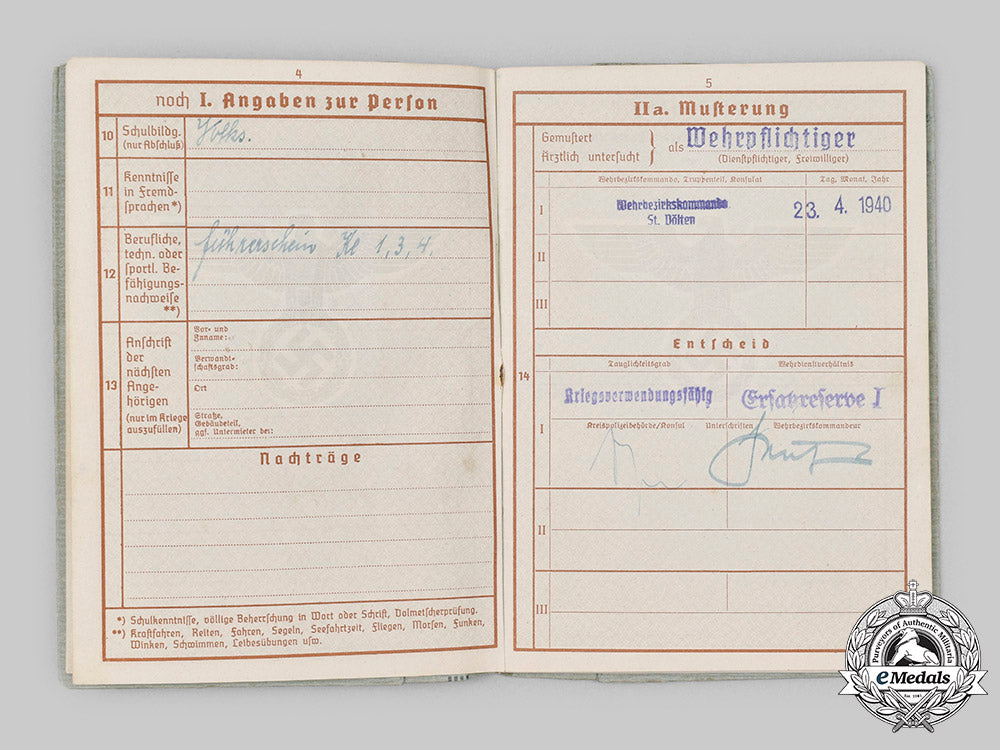 4
noch I. Angaben zur Person
10 Schulbildg. (nur Abschluß)
Volks.
11 Kenntnisse in Fremdsprachen*)
12 Berufliche, techn. oder sportl. Befähigungsnachweise **)
führerschein Kl 1, 3, 4.
13 Anschrift der nächsten Angehörigen (nur im Kriege auszufüllen)
Vor- und Zuname:
Verwandtschaftsgrad:
Ort
Straße, Gebäudeteil, ggf. Untermieter bei:
Nachträge
*) Schulkenntnisse, völlige Beherrschung in Wort oder Schrift, Dolmetscherprüfung.
**) Kraftfahren, Reiten, Fahren, Segeln, Seefahrtzeit, Fliegen, Morsen, Funken,
Winken, Schwimmen, Leibesübungen usw.
5
IIa. Musterung
Gemustert
Ärztlich untersucht
als Wehrpflichtiger
(Dienstpflichtiger, Freiwilliger)
Wehrbezirkskommando, Truppenteil, Konsulat
Tag, Monat, Jahr
I
Wehrbezirkskommando
St. Pölten
23. 4. 1940
II
III
Entscheid
14
Tauglichkeitsgrad
Wehrdienstverhältnis
Kriegsverwendungsfähig
Ersatzreserve I
I
Kreispolizeibehörde/Konsul Unterschriften Wehrbezirkskommandeur
II
III
Purveyors of Authentic Militaria
eMedals